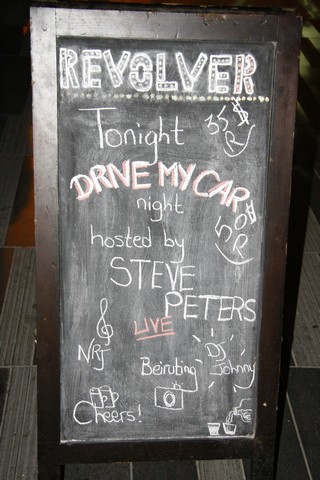 REVOLVER
Tonight
DRIVE MY CAR
night
hosted by
STEVE
PETERS
LIVE
NRJ
Beiruting
DJ
Johnny
Cheers!